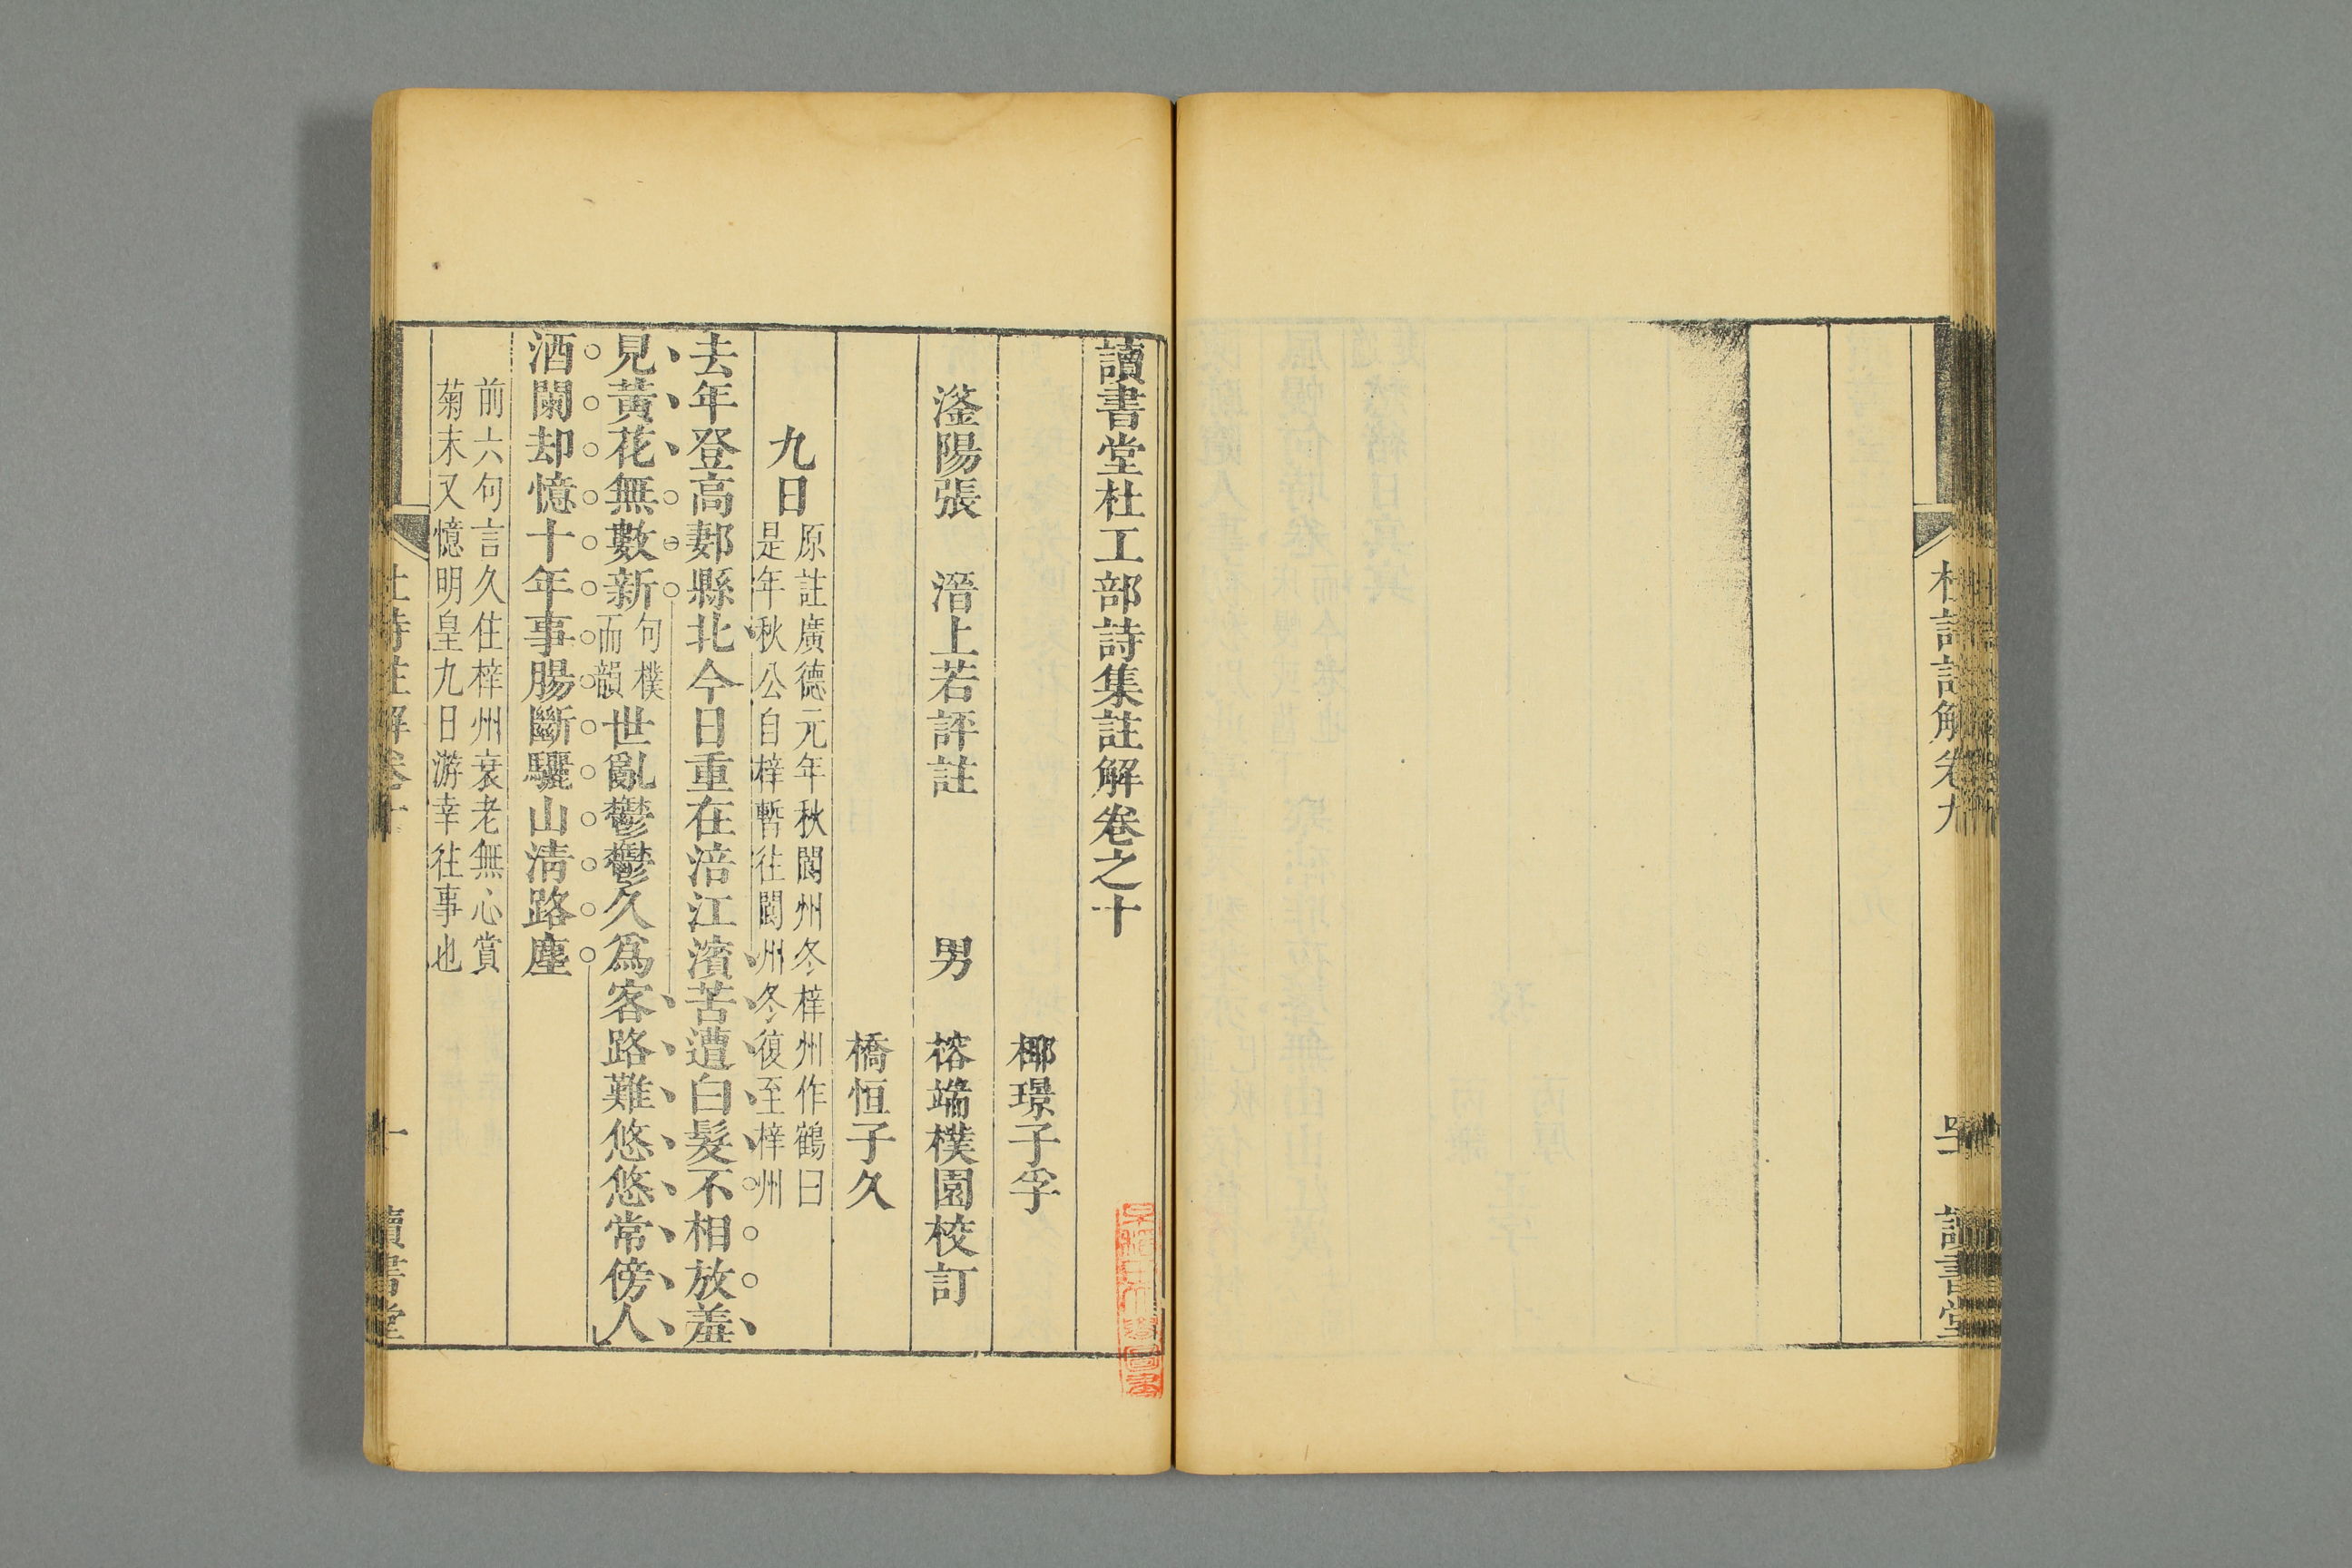 杜詩註解卷九
讀書堂
讀書堂杜工部詩集註解卷之十
榔璟子孚
滏陽張　溍上若評註　男　榕端樸園校訂
橋恒子久
九日
原註廣德元年秋閬州冬梓州作鶴曰
是年秋公自梓暫往閬州冬復至梓州
去年登高郪縣北今日重在涪江濱苦遭白髮不相放羞
見黃花無數新
句樸
而韻
世亂鬱鬱久爲客路難悠悠常傍人
酒闌却憶十年事腸斷驪山淸路塵
前六句言久住梓州衰老無心賞
菊末又憶明皇九日游幸往事也
杜詩註解卷十
一
讀書堂